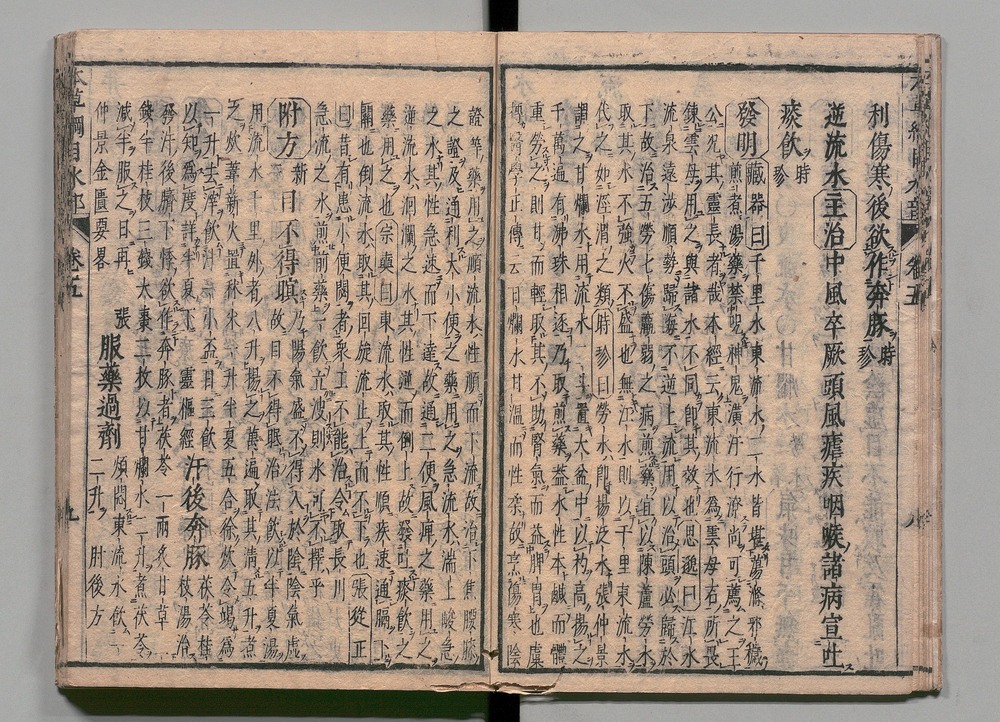 利傷寒後欲作奔豚時珍
逆流水主治中風卒厥頭風瘧疾咽喉諸病宣吐
痰飲時珍
發明藏器曰千里水東流水二水皆堪蕩滌邪穢
煎煮湯藥禁呪神鬼潢汙行潦尚可薦之王
公況其靈長者哉本經云東流水爲雲母石所畏
鍊雲母用之與諸水不同即其效也思邈曰江水
流泉遠涉順勢歸海不逆上流用以治頭必歸於
下故治五勞七傷羸弱之病煎藥宜以陳蘆勞水
取其水不強火不盛也無江水則以千里東流水
代之如涇渭之類時珍曰勞水即揚泛水張仲景
謂之甘爛水用流水二斗置大盆中以杓高揚之
千萬遍有沸珠相逐乃取煎藥葢水性本鹹而體
重勞之則甘而輕取其不助腎氣而益脾胃也虞
摶醫學正傳云甘爛水甘溫而性柔故烹傷寒陰
卷五
八
證等藥用之順流水性順而下流故治下焦腰膝
之證及通利大小便之藥用之急流水湍上峻急
之水其性急速而下達故通二便風痺之藥用之
逆流水洄瀾之水其性逆而倒上故發吐痰飲之
藥用之也宗奭曰東流水取其性順疾速通膈下
關也倒流水取其回旋流止上而不下也張從正
曰昔有患小便閟者衆工不能治令取長川
急流之水煎前藥一飲立溲則水可不擇乎
附方新目不得瞑乃陽氣盛不得入於陰陰氣虛
故目不得眠治法飲以半夏湯
用流水千里外者八升揚之萬遍取其清五升煮
之炊葦薪火置秫米一升半夏五合徐炊令竭爲
一升半去滓飲汁一小盃日三飲
以知爲度詳半夏下靈樞經汗後奔豚茯苓桂枝湯治
發汗後臍下悸欲作奔豚者茯苓一兩炙甘草二
錢半桂枝三錢大棗二枚以甘爛水二升煮茯苓
減半服之日再張
仲景金匱要畧
服藥過劑煩悶東流水飲一二升肘後方
本草綱目水部
卷五
九